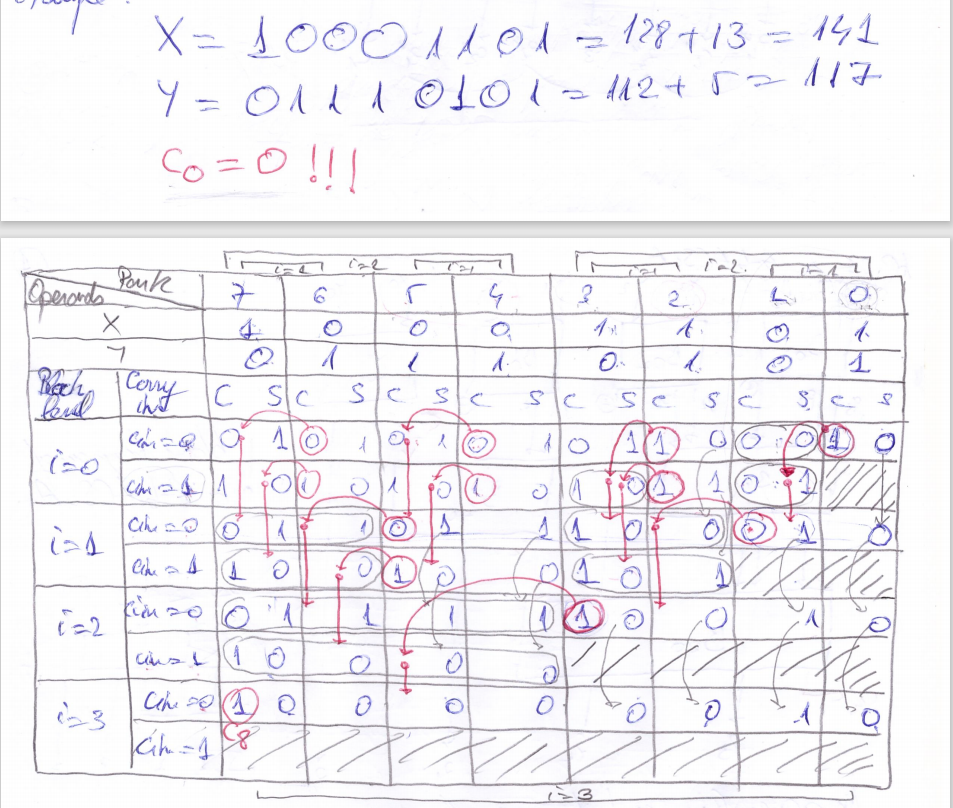 X = 1 0 0 0 1 1 0 1 = 128 + 13 = 141
Y = 0 1 1 1 0 1 0 1 = 112 + 5 = 117
C0 = 0 !!!
i=1 i=2 i=1 i=1 i=2 i=1
Operands Rank 7 6 5 4 3 2 1 0
X 1 0 0 0 1 1 0 1
Y 0 1 1 1 0 1 0 1
Block level Carry in C S C S C S C S C S C S C S C S
i=0 cin=0 0 1 0 1 0 1 0 1 0 1 1 0 0 0 1 0
cin=1 1 0 1 0 1 0 1 0 1 0 1 1 0 1
i=1 cin=0 0 1 1 0 1 1 1 0 0 0 1 0
cin=1 1 0 0 1 0 0 1 0 1
i=2 cin=0 0 1 1 1 1 1 0 0 1 0
cin=1 1 0 0 0 0
i=3 cin=0 1 0 0 0 0 0 0 1 0
cin=1 C8
i=3